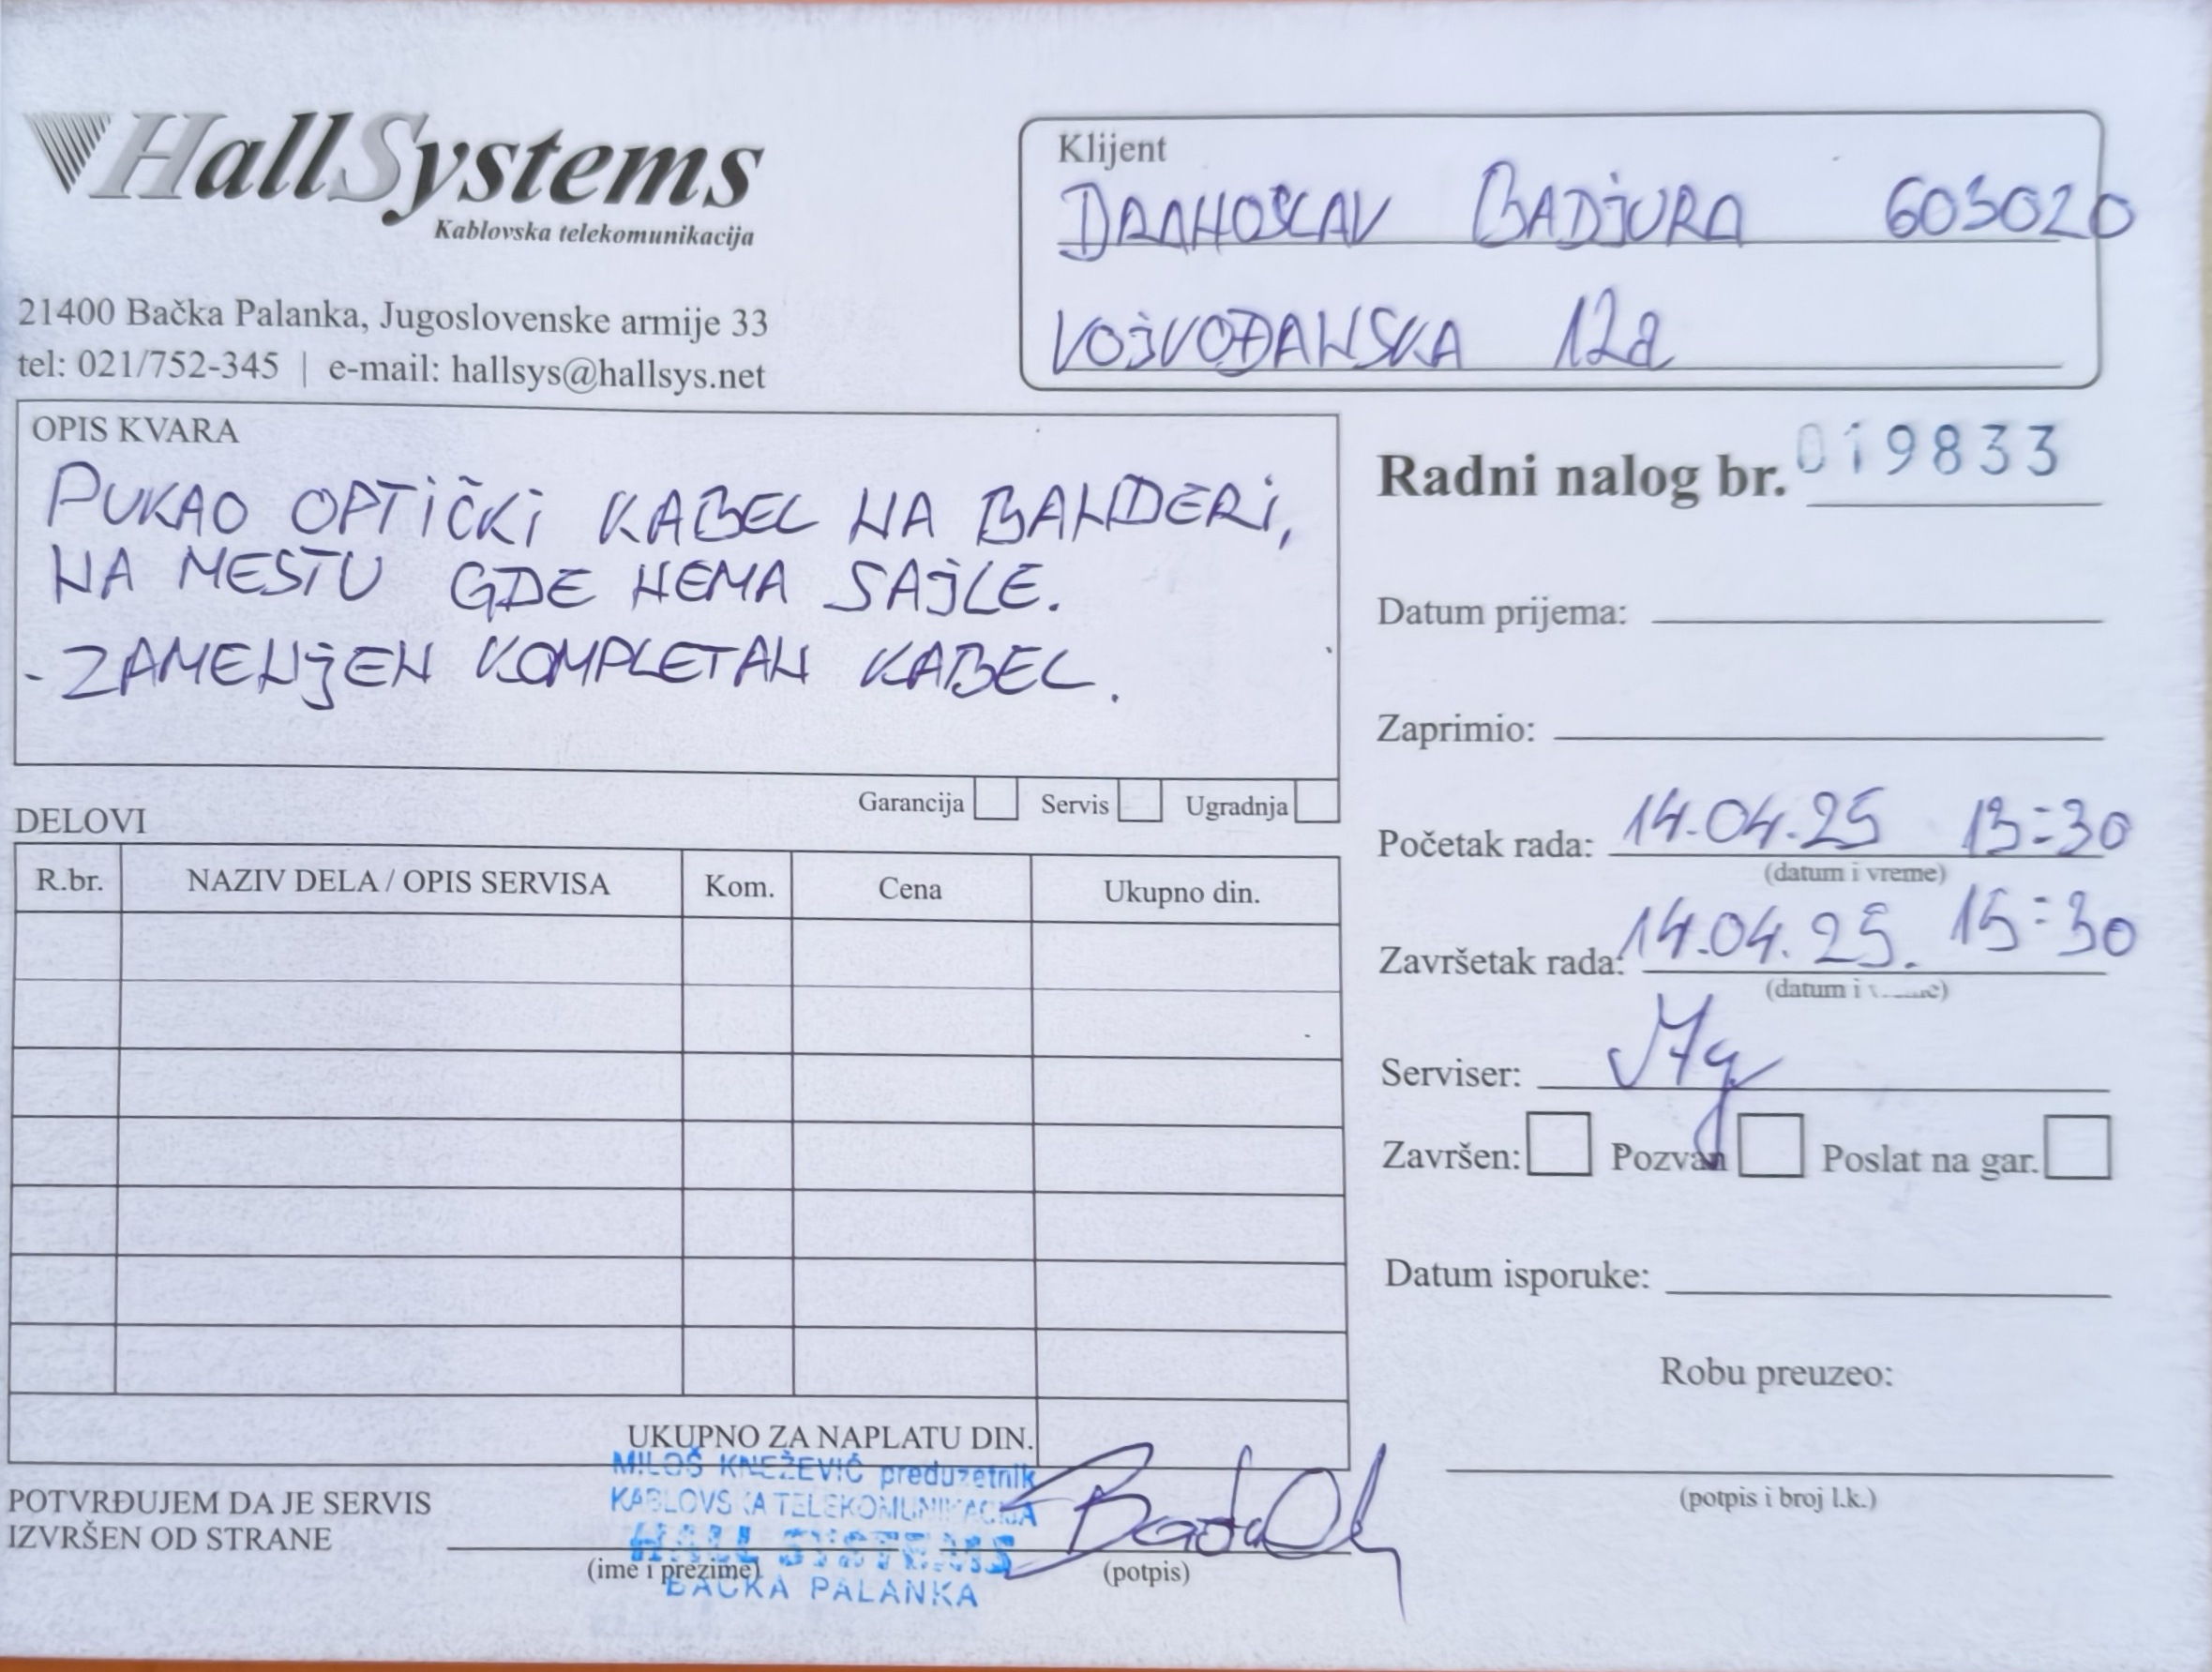 HallSystems
Kablovska telekomunikacija
21400 Bačka Palanka, Jugoslovenske armije 33
tel: 021/752-345 | e-mail: hallsys@hallsys.net
Klijent
DRAHOSLAV BADJURA 603020
VOJVOĐANSKA 12a
OPIS KVARA
PUKAO OPTIČKI KABEL NA BANDERI,
NA MESTU GDE NEMA SAJLE.
- ZAMENJEN KOMPLETAN KABEL.
Garancija Servis Ugradnja
Radni nalog br. 019833
Datum prijema:
Zaprimio:
Početak rada: 14.04.25 13:30
(datum i vreme)
Završetak rada: 14.04.25. 15:30
(datum i
Serviser:
Završen: Pozvan Poslat na gar.
Datum isporuke:
Robu preuzeo:
(potpis i broj l.k.)
DELOVI
R.br. NAZIV DELA / OPIS SERVISA Kom. Cena Ukupno din.
UKUPNO ZA NAPLATU DIN.
MILOŠ KNEŽEVIĆ preduzetnik
KABLOVSKA TELEKOMUNIKACIJA
HALL SYSTEMS
BAČKA PALANKA
POTVRĐUJEM DA JE SERVIS
IZVRŠEN OD STRANE
(ime i prezime) (potpis)